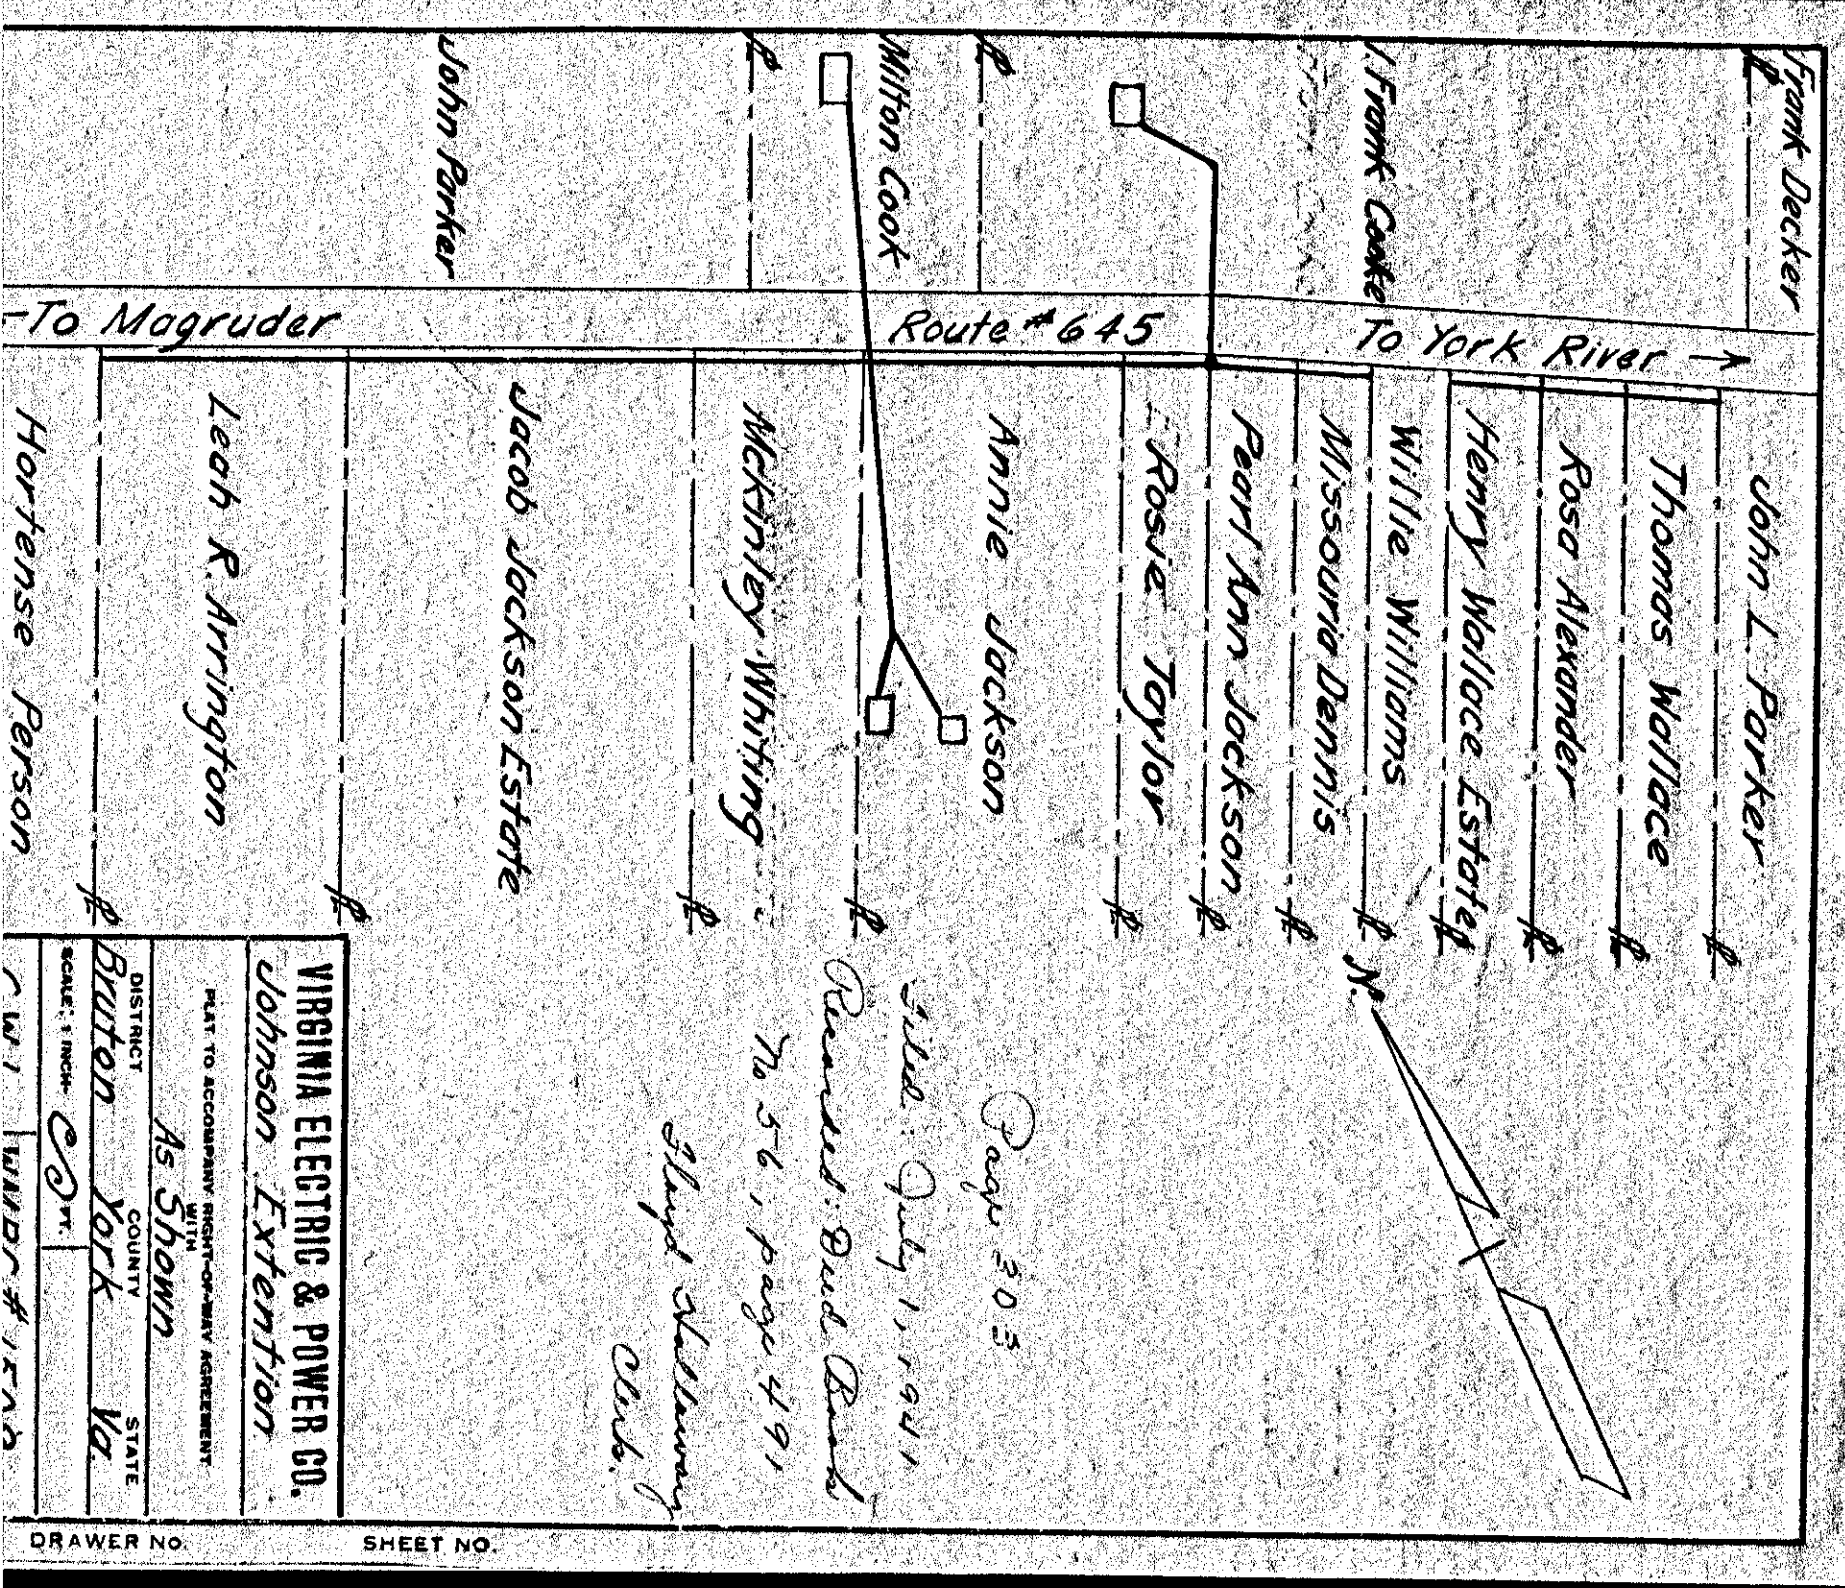 Frank Decker
J. Frank Cooke
Milton Cook
John Parker
-To Magruder
Route #645
To York River →
John L. Parker
Thomas Wallace
Rosa Alexander
Henry Wallace Estate
Willie Williams
Missouria Dennis
Pearl Ann Jackson
Rosie Taylor
Annie Jackson
McKinley Whiting
Jacob Jackson Estate
Leah R. Arrington
Hortense Person
N.
Page 303
Filed: July 1, 1941
Recorded: Deed Book
No 56, page 491
Floyd Holloway
Clerk.
VIRGINIA ELECTRIC & POWER CO.
Johnson Extention
PLAT TO ACCOMPANY RIGHT-OF-WAY AGREEMENT
WITH
As Shown
DISTRICT COUNTY STATE
Bruton York Va.
SCALE: 1 INCH= FT.
DRAWER NO.
SHEET NO.